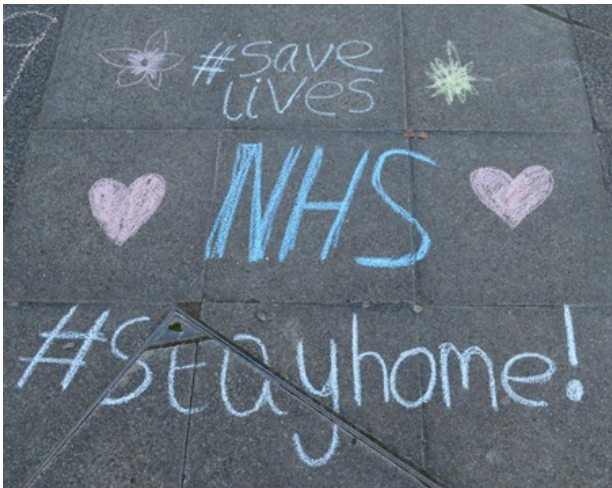 #save
lives
NHS
#Stayhome!